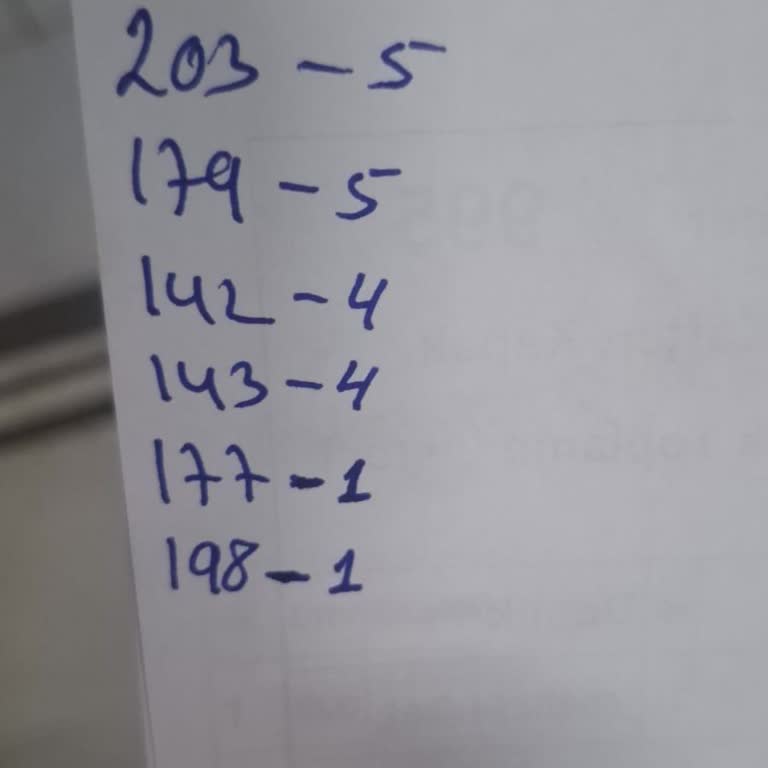 203 - 5
179 - 5
142 - 4
143 - 4
177 - 1
198 - 1